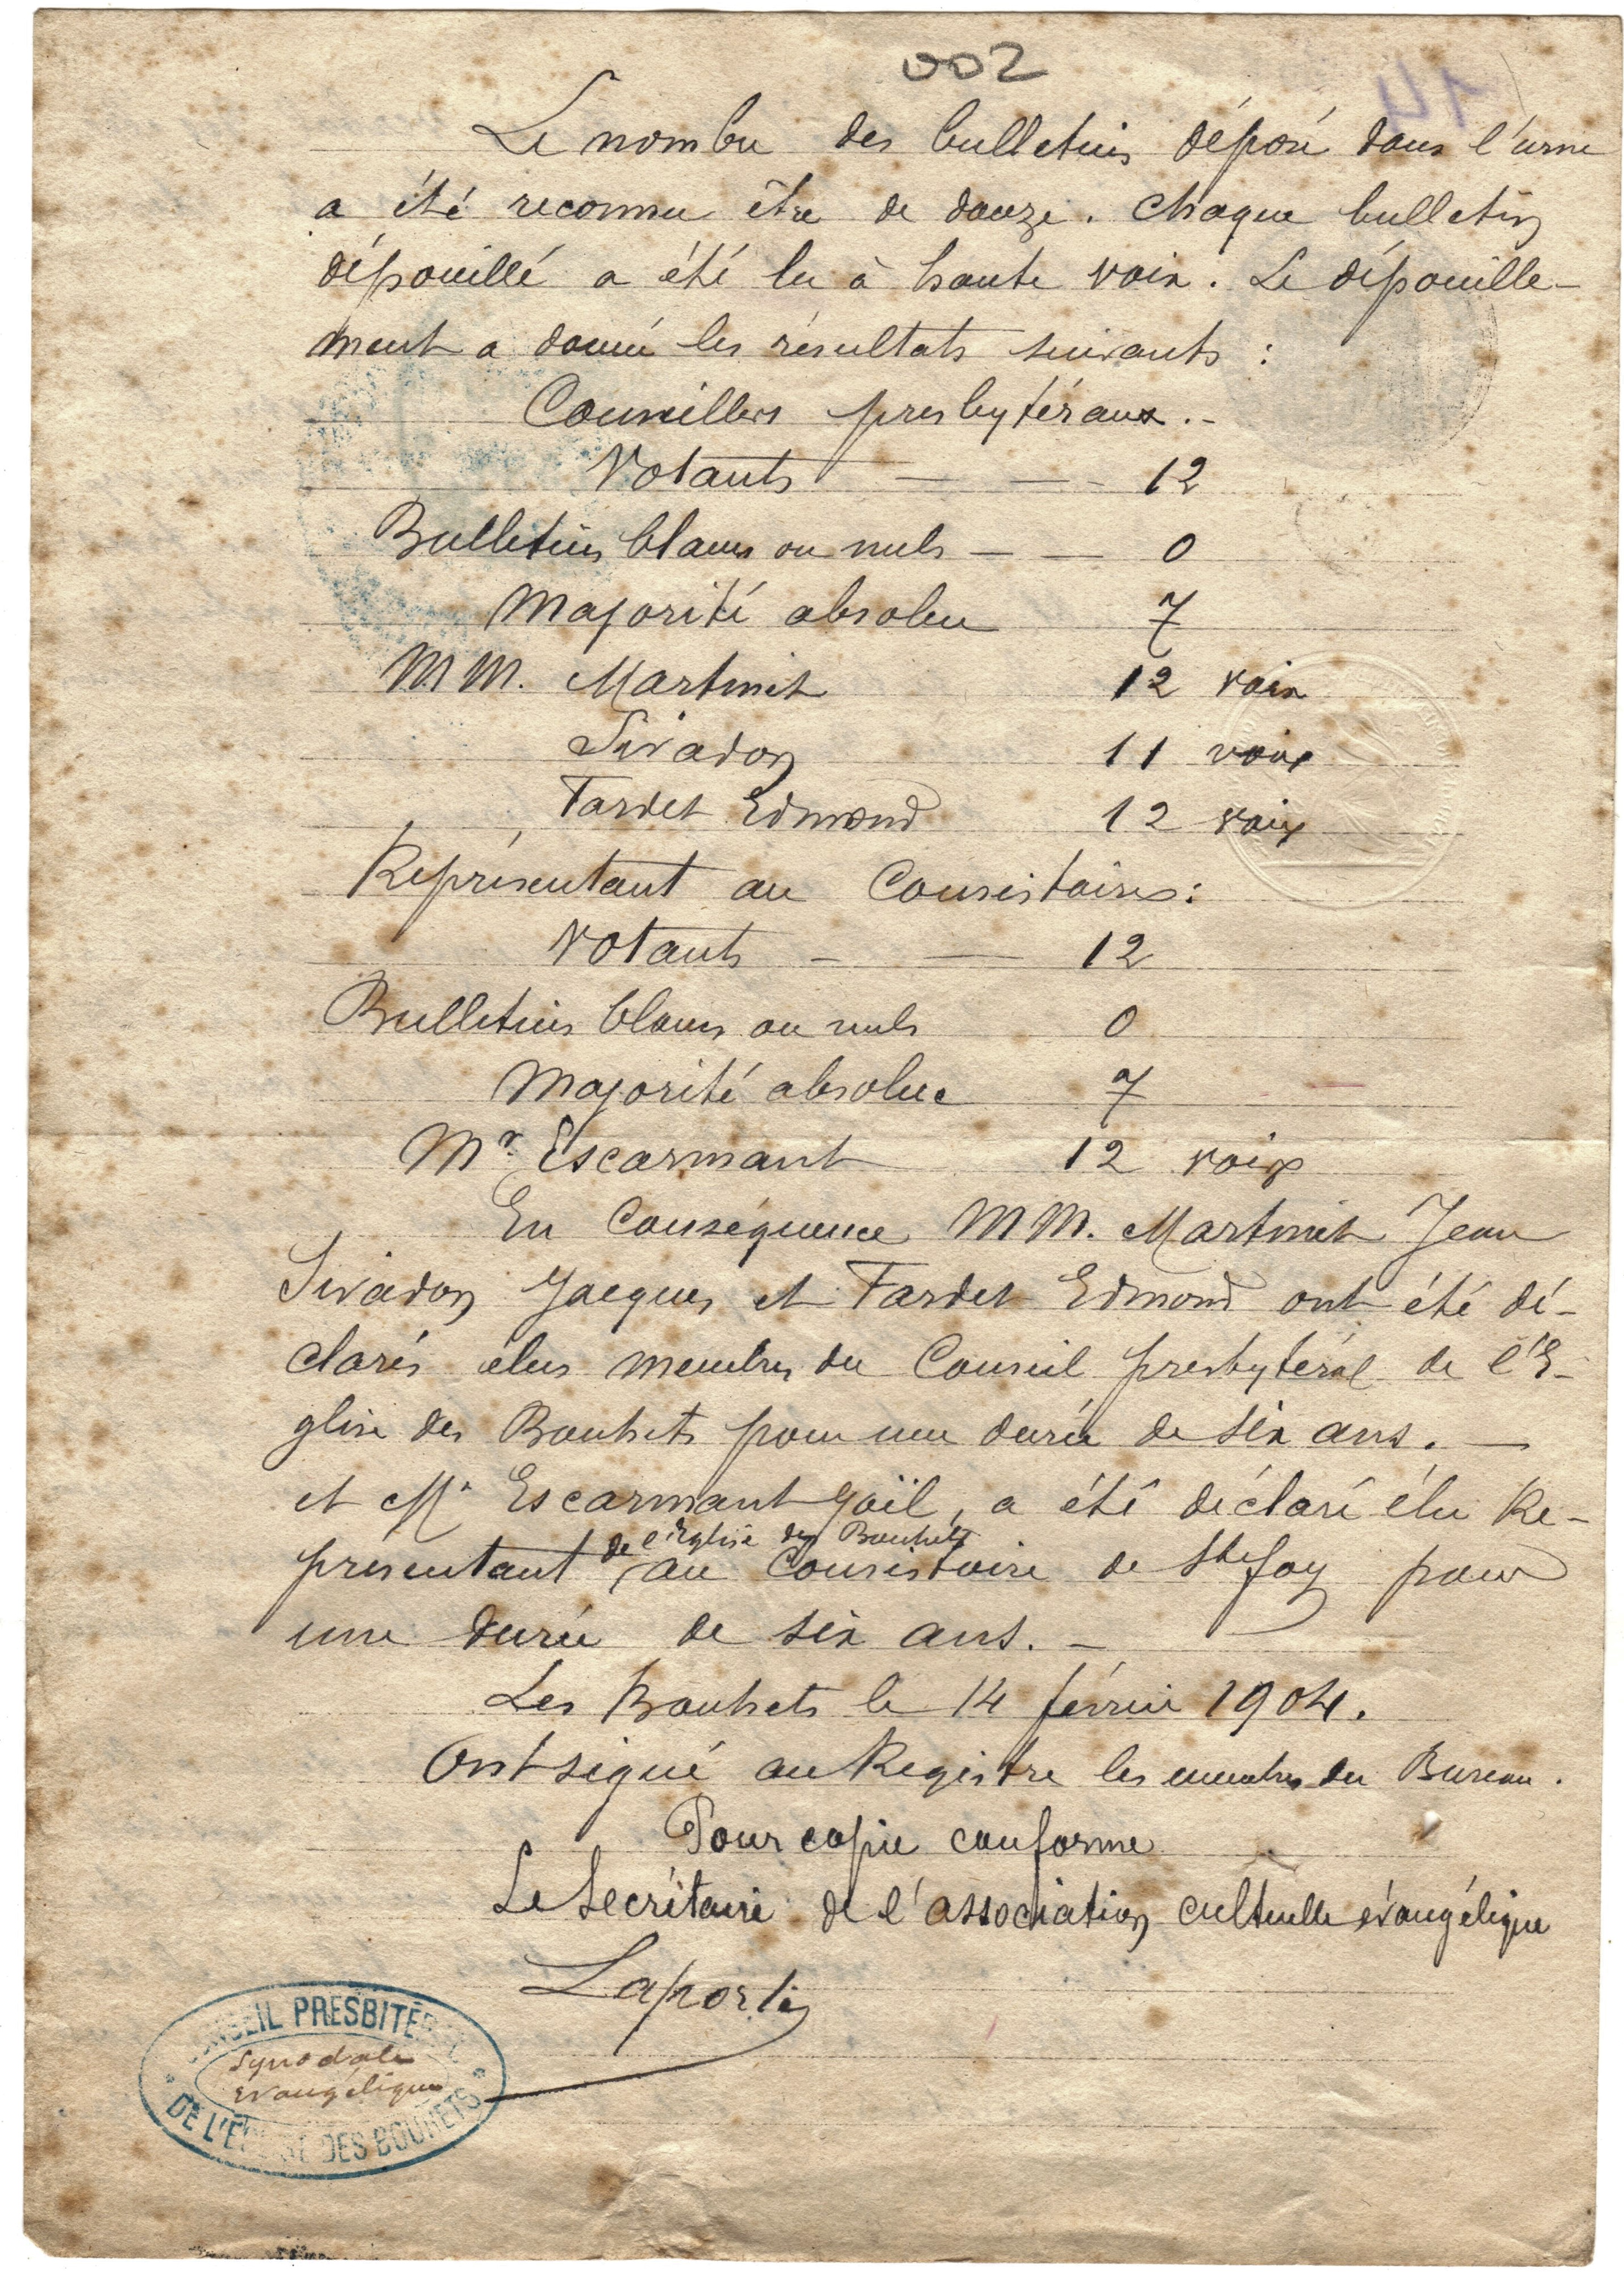 002
Le nombre des bulletins déposé dans l'urne
a été reconnu être de douze. Chaque bulletin
dépouillé a été lu à haute voix. Le dépouille-
ment a donné les résultats suivants :
Conseillers presbytéraux.-
Votants — — 12
Bulletins blancs ou nuls — — 0
Majorité absolue 7
M.M. Martinet 12 voix
Sivadon 11 voix
Tardet Edmond 12 voix
Représentant au Consistoire :
Votants — — 12
Bulletins blancs ou nuls 0
Majorité absolue 7
Mr Escarmant 12 voix
En conséquence MM. Martinet Jean
Sivadon Jacques et Tardet Edmond ont été dé-
clarés élus membres du Conseil presbytéral de l'E-
glise des Bouhets pour une durée de six ans. —
et Mr Escarmant Joël, a été déclaré élu Re-
de l'Eglise des Bouhets
présentant au Consistoire de Ste foy pour
une durée de six ans. —
Les Bouhets le 14 février 1904.
Ont signé au Registre les membres du Bureau.
Pour copie conforme
Le Secrétaire de l'association cultuelle évangélique
Laporte
CONSEIL PRESBITERAL
Synodale
Evangélique
DE L'ÉGLISE DES BOUHETS